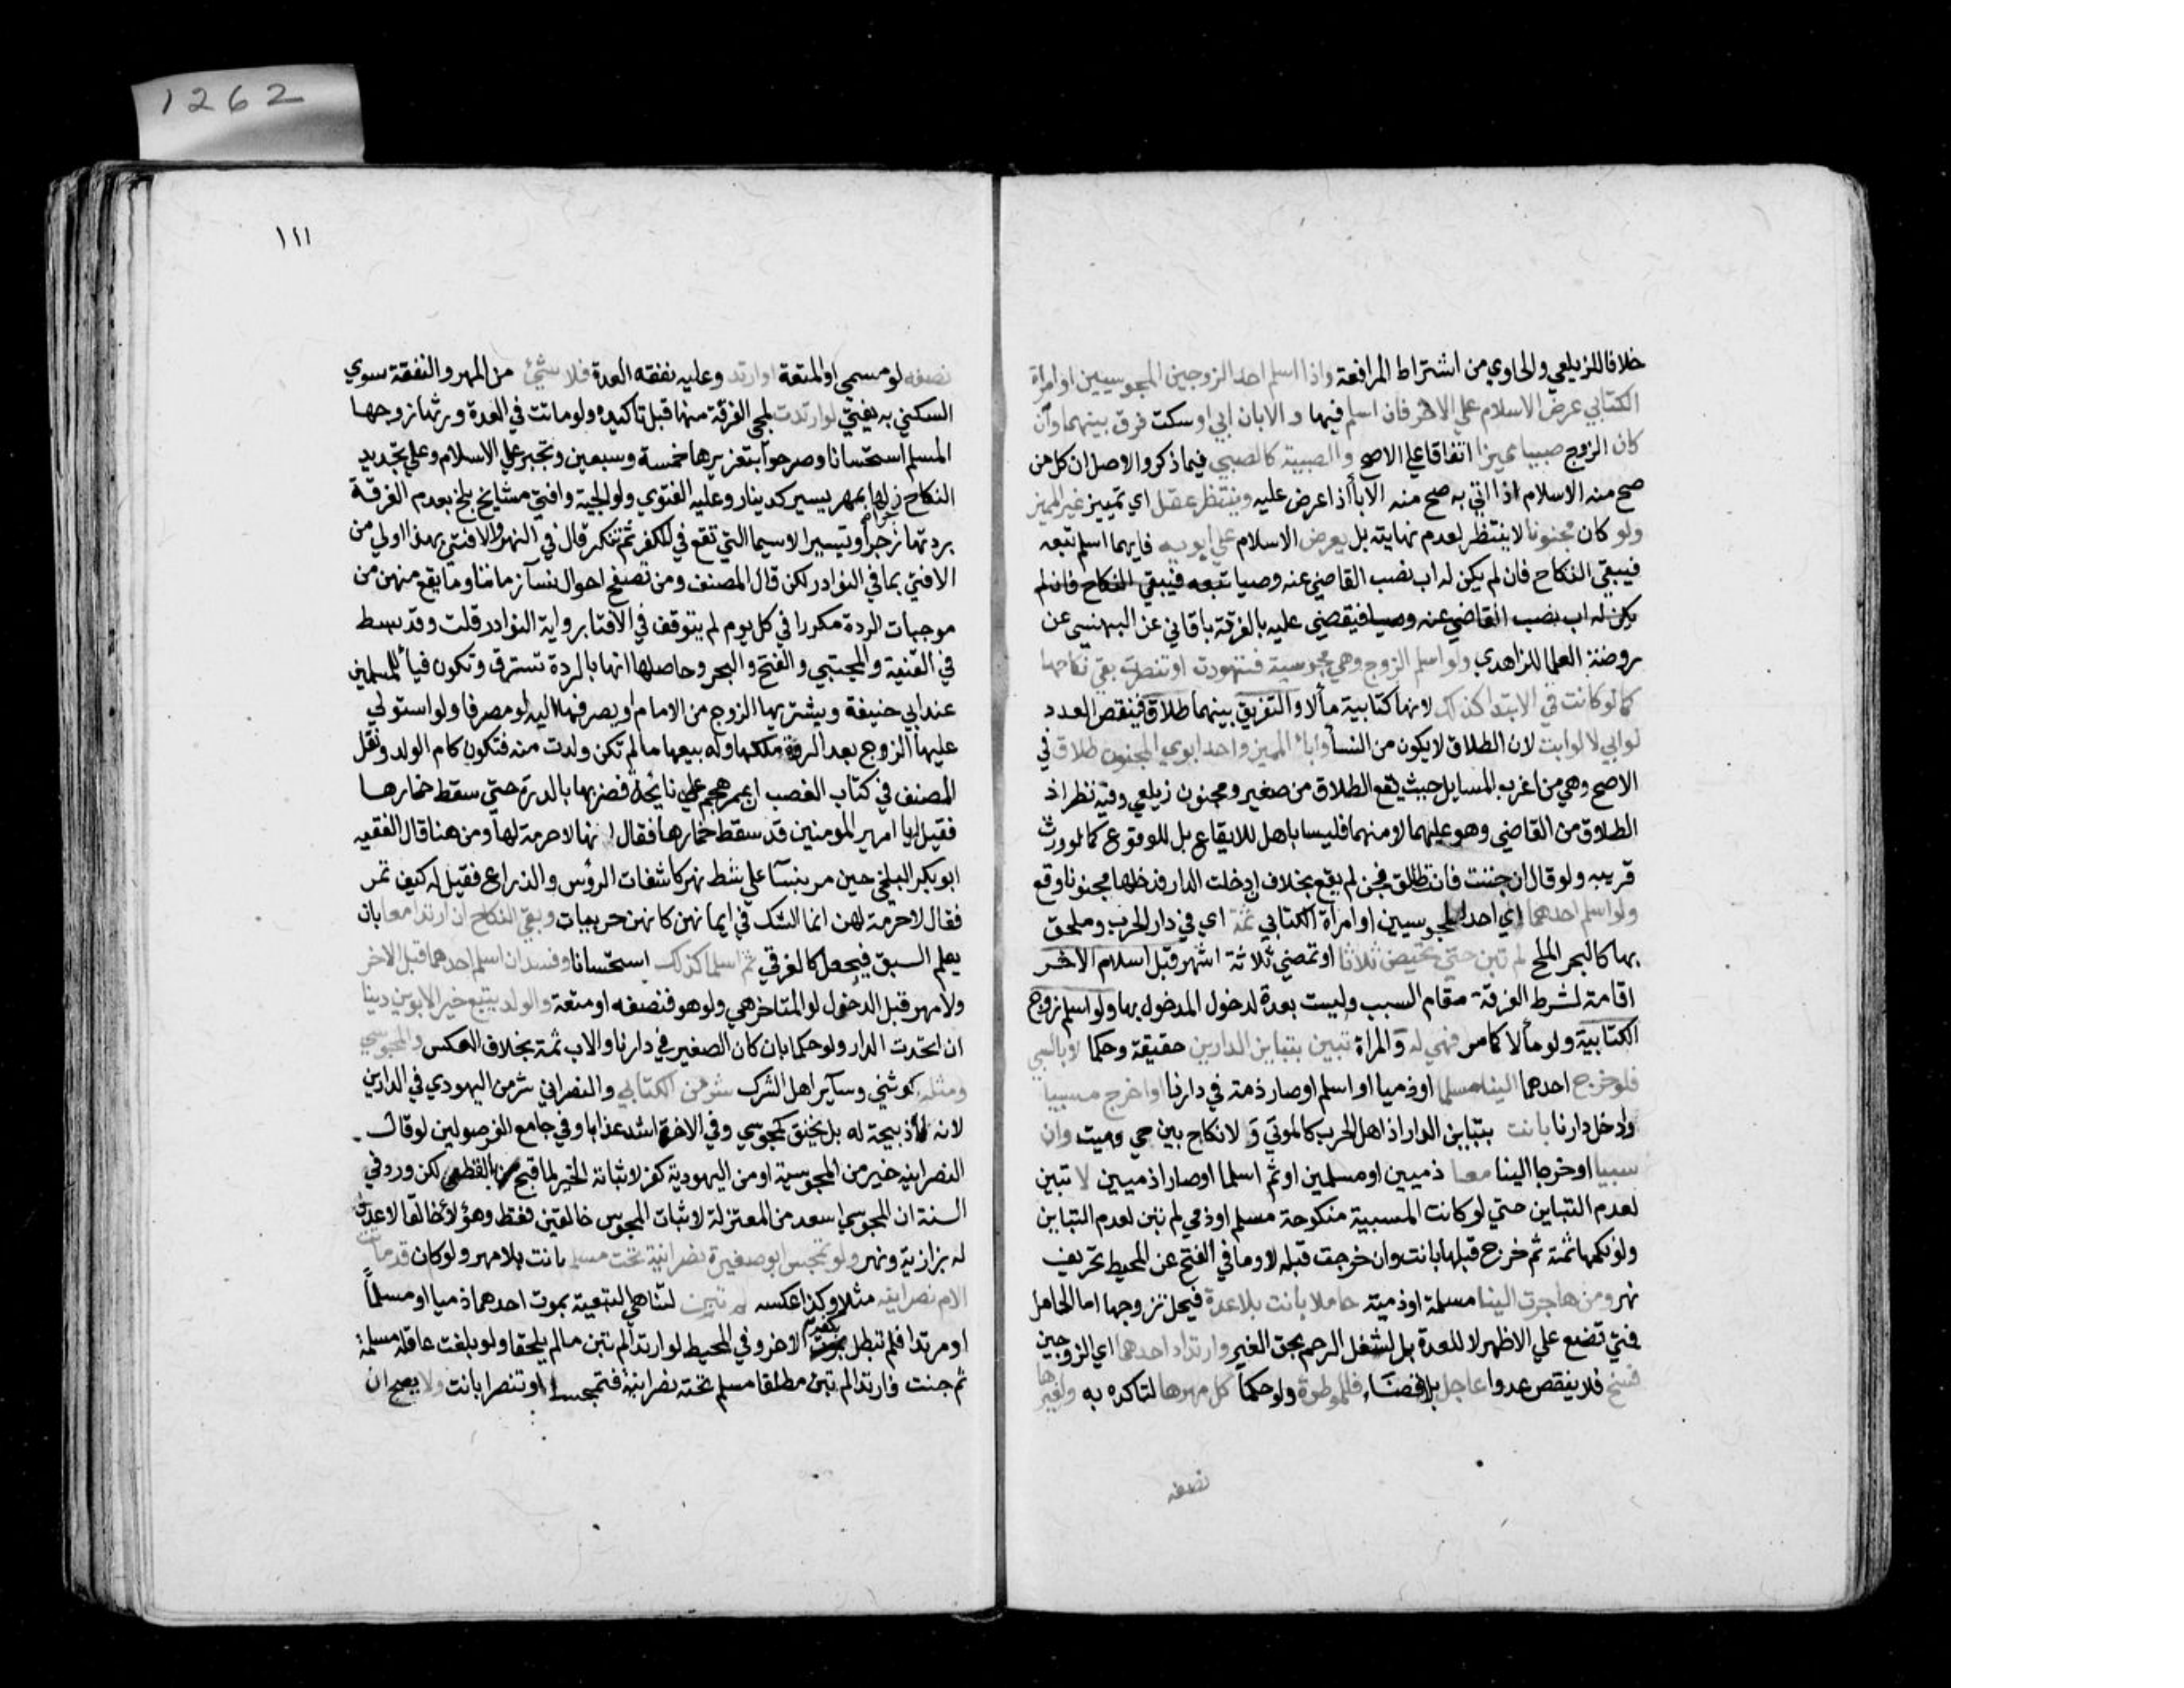 خلافا للزيلعي والحاوي من اشتراط المرافعة واذا اسلم احد الزوجين المجوسيين او امراة
الكتابي عرض الاسلام علي الاخر فان اسلم فيها والا بان ابي او سكت فرق بينهما وان
كان الزوج صبيا مميزا اتفاقا علي الاصح والصبية كالصبي فيما ذكر والاصل ان كل من
صح منه الاسلام اذا اتي به صح منه الابا أذا عرض عليه وينتظر عقل اي تمييز غير المميز
ولو كان مجنونا لا ينتظر لعدم نهايته بل يعرض الاسلام علي ابويه فايهما اسلم تبعه
فيبقي النكاح فان لم يكن له اب نصب القاضي عنه وصيا تبعه فيبقي النكاح فان لم
يكن له اب نصب القاضي عنه وصيا فيقضي عليه بالفرقة باقاني عن البهنسي عن
روضة العلما للزاهدي ولو اسلم الزوج وهي مجوسية فتهودت او تنصرت بقي نكاحها
كما لو كانت في الابتدا كذلك لانها كتابية مألا والتفريق بينهما طلاق فينقص العدد
لو ابي لا لو ابت لان الطلاق لا يكون من النسأ واباء المميز واحد ابوي المجنون طلاق في
الاصح وهي من اغرب المسايل حيث يقع الطلاق من صغير ومجنون زيلعي وفيه نظر اذ
الطلاق من القاضي وهو عليهما لا منهما فليسا باهل للايقاع بل للوقوع كما لو ورث
قريبه ولو قال ان جننت فانت طالق فجن لم يقع بخلاف ان دخلت الدار فدخلها مجنونا وقع
ولو اسلم احدهما اي احد المجوسيين او امراة الكتابي ثمة اي في دار الحرب وملحق
بها كالبحر الملح لم تبن حتي تحيض ثلاثا او تمضي ثلاثة اشهر قبل اسلام الاخر
اقامة لشرط الفرقة مقام السبب وليست بعدة لدخول غير المدخول بها ولو اسلم زوج
الكتابية ولو مألا كما مر فهي له و المراة تبين بتباين الدارين حقيقة وحكما لا بالسبي
فلو خرج احدهما الينا مسلما او ذميا او اسلم او صار ذمة في دارنا او اخرج مسبيا
وادخل دارنا بانت بتباين الدار اذ اهل الحرب كالموتي و لا نكاح بين حي وميت وان
سبيا او خرجا الينا معا ذميين او مسلمين او ثم اسلما او صارا ذميين لا تبين
لعدم التباين حتي لو كانت المسبية منكوحة مسلم او ذمي لم تبن لعدم التباين
ولو نكحها ثمة ثم خرج قبلها بانت وان خرجت قبله لا وما في الفتح عن المحيط تحريف
نهر ومن هاجرت الينا مسلمة او ذمية حاملا بانت بلا عدة فيحل تزوجها اما الحامل
فحتي تضع علي الاظهر لا للعدة بل لشغل الرحم بحق الغير وارتداد احدهما اي الزوجين
فسخ فلا ينقص عددا عاجل بلا قضاء فللموطوة ولو حكما كل مهرها لتاكده به ولغيرها
نصفه
١١١
نصفه لو مسمي او المتعة لو ارتد وعليه نفقه العدة فلا شئ من المهر والنفقة سوي
السكني به يفتي لو ارتدت لمجي الفرقة منها قبل تاكيده ولو ماتت في العدة ورثها زوجها
المسلم استحسانا وصرحوا بتعزيرها خمسة وسبعين وتجبر علي الاسلام وعلي تجديد
النكاح زجرا لها بمهر يسير كدينار وعليه الفتوي ولوالجية وافتي مشايخ بلخ بعدم الفرقة
بردتها زجرا وتيسيرا لاسيما التي تقع في المكفر ثم تنكر قال في النهر والافتي بهذا اولي من
الافتي بما في النوادر لكن قال المصنف ومن تصفح احوال نسآ زماننا وما يقع منهن من
موجبات الردة مكررا في كل يوم لم يتوقف في الافتا برواية النوادر قلت وقد بسط
في القنية والمجتبي والفتح والبحر وحاصلها انها بالردة تسترق وتكون فيأ للمسلمين
عند ابي حنيفة ويشتريها الزوج من الامام او يصرفها اليه لو مصرفا ولو استولي
عليها الزوج بعد الردة ملكها وله بيعها ما لم تكن ولدت منه فتكون كام الولد ونقل
المصنف في كتاب الغصب ان عمر هجم علي نايحة فضربها بالدرة حتي سقط خمارها
فقيل له يا امير المومنين قد سقط خمارها فقال انها لا حرمة لها ومن هنا قال الفقيه
ابو بكر البلخي حين مر بنسآ علي شط نهر كاشفات الرؤس والذراع فقيل له كيف تمر
فقال لا حرمة لهن انما الشك في ايمانهن كانهن حربيات وبقي النكاح ان ارتدا معا بان
يعلم السبق فيجعل كالغرقي ثم اسلما كذلك استحسانا وفسد ان اسلم احدهما قبل الاخر
ولا مهر قبل الدخول لو المتاخر هي ولو هو فنصفه او متعة والولد يتبع خير الابوين دينا
ان اتحدت الدار ولو حكما بان كان الصغير في دارنا والاب ثمة بخلاف العكس والمجوسي
ومثله كوثني وسآير اهل الشرك شر من الكتابي والنصراني شر من اليهودي في الدارين
لانه لا ذبيحة له بل يخنق كمجوسي وفي الاخرة اشد عذابا وفي جامع الفصولين لو قال
النصرانية خير من المجوسية او من اليهودية كفر لاثباته الخير لما قبح بالقطعي لكن ورد في
السنة ان المجوسي اسعد من المعتزلة لاثبات المجوس خالقين فقط وهؤلاء خالقا لا عدد
له بزازية ونهر ولو تمجس ابو صغيرة نصرانية تحت مسلم بانت بلا مهر ولو كان قد ماتت
الام نصرانية مثلا وكذا عكسه لم تبن لتناهي التبعية بموت احدهما ذميا او مسلما
او مرتدا فلم تبطل بكفر الاخر وفي المحيط لو ارتدا لم تبن ما لم يلحقا ولو بلغت عاقلة مسلمة
ثم جنت فارتدا لم تبن مطلقا مسلم تحته نصرانية فتمجسا او تنصرا بانت ولا يصح ان
1262